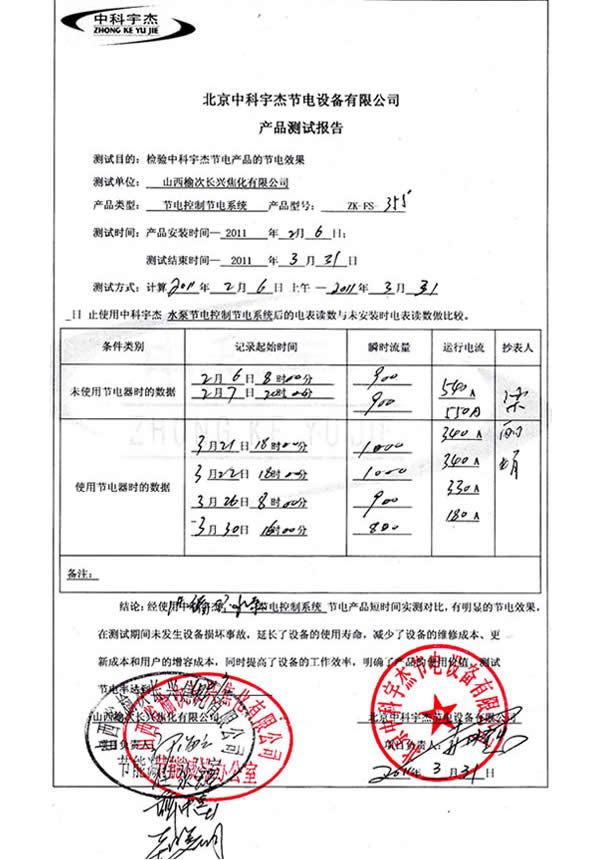 中科宇杰
ZHONG KE YU JIE
北京中科宇杰节电设备有限公司
产品测试报告
测试目的：检验中科宇杰节电产品的节电效果
测试单位： 山西榆次长兴焦化有限公司
产品类型： 节电控制节电系统 产品型号： ZK-FS-355
测试时间：产品安装时间— 2011 年 2月 6 日；
测试结束时间— 2011 年 3 月 31 日
测试方式：计算 2011 年 2 月 6 日 上午 — 2011 年 3 月 31
日 止使用中科宇杰 水泵节电控制节电系统后的电表读数与未安装时电表读数做比较。
条件类别 记录起始时间 瞬时流量 运行电流 抄表人
未使用节电器时的数据
2 月 6 日 8 时00分 900 540 A
2 月 7 日 20时00分 900 550 A
使用节电器时的数据
3 月 21 日 18时00分 1000 340 A
3 月 22 日 18时00分 1000 340 A
3 月 26 日 8时00分 900 330 A
3 月 30 日 16时00分 800 180 A
ZHONG KE YU JIE
备注：
结论：经使用中 节电控制系统 节电产品短时间实测对比，有明显的节电效果，
在测试期间未发生设备损坏事故，延长了设备的使用寿命，减少了设备的维修成本、更
新成本和用户的增容成本，同时提高了设备的工作效率，明确了产品的使用价值。测试
节电率达到
山西榆次长兴焦化有限公司 北京中科宇杰节电设备有限公司
项目负责人： 项目负责人：
2011年 3 月 31 日